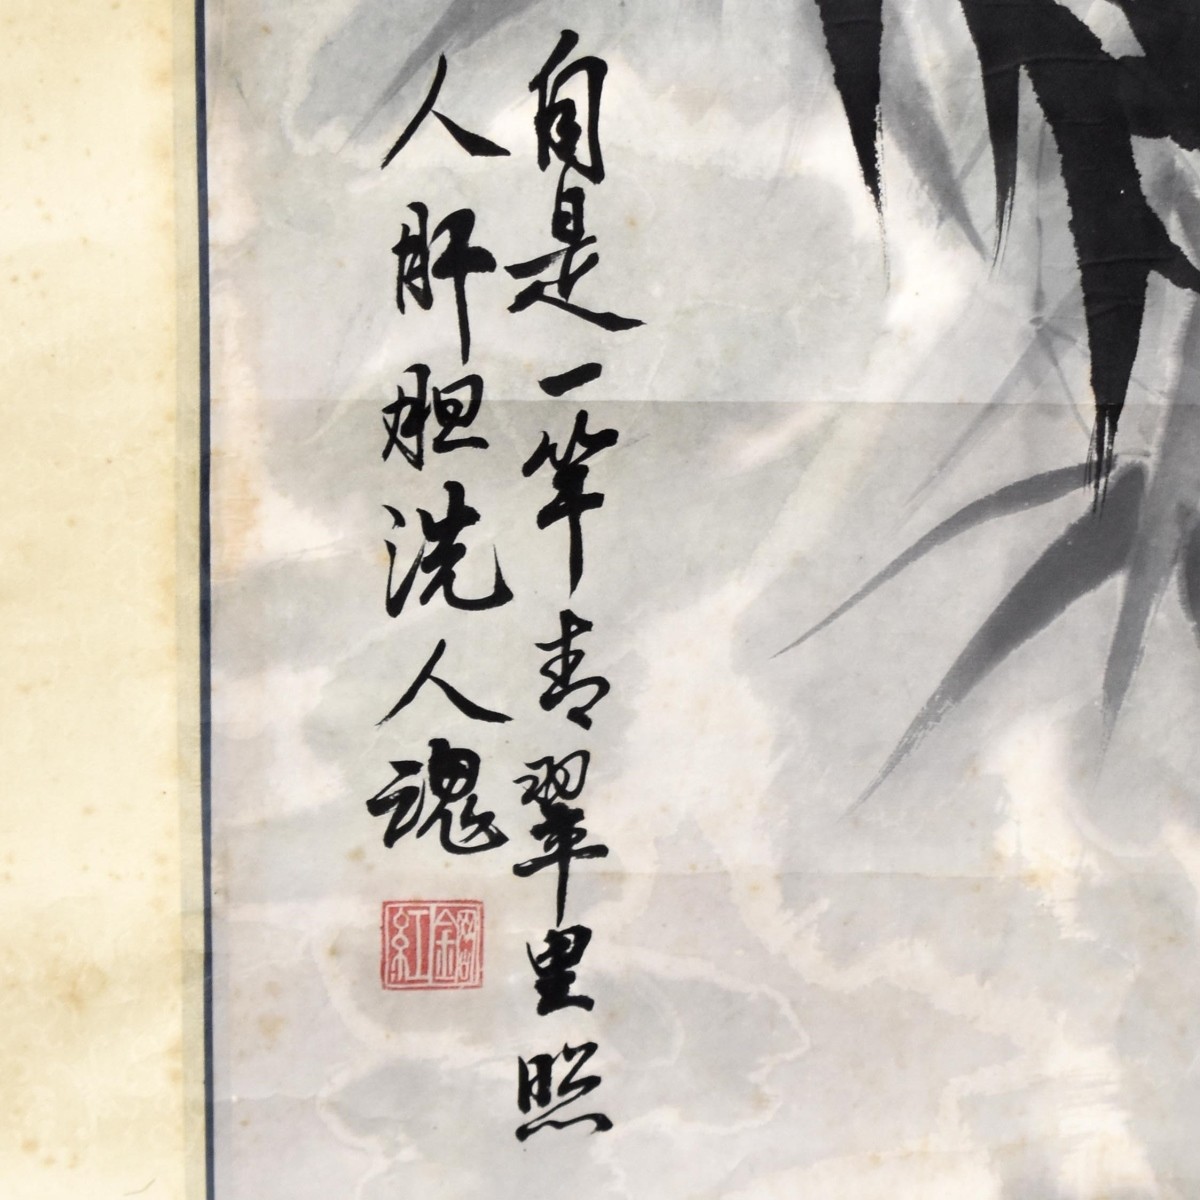 自是一竿青翠里照
人肝胆洗人魂